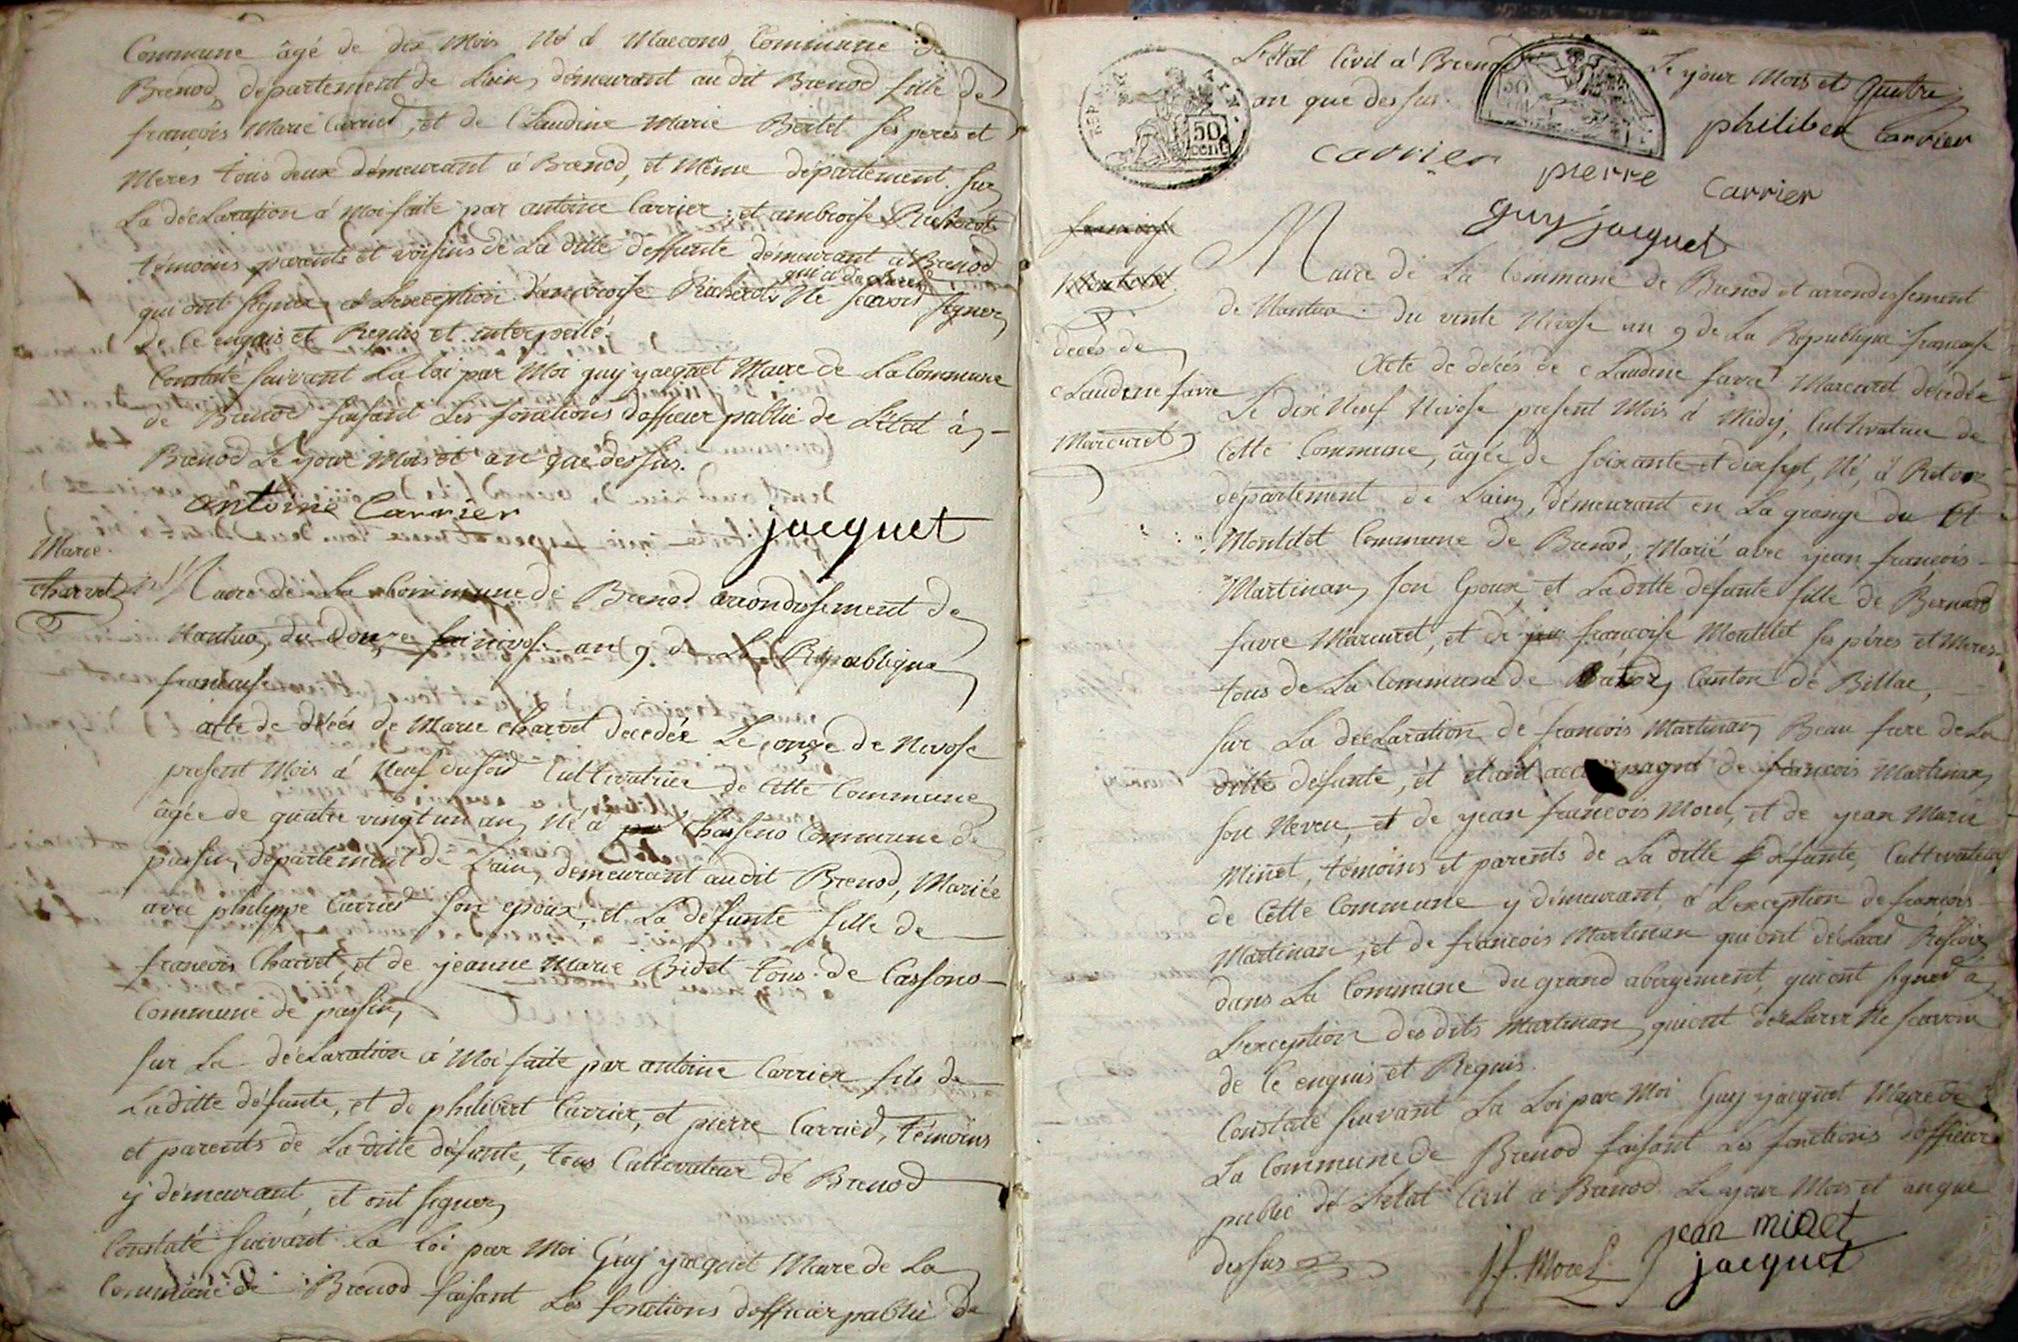 Commune âgé de dix Mois Né à Macconod Commune de
Brenod, département de Lain, démeurant au dit Brenod fille de
françois Marie Carrier, et de Claudine Marie Bertet ses peres et
Meres tous deux démeurant à Brenod, et Même département. sur
La déclaration à Moi faite par antoine Carrier, et ambroise Richerot
témoins parents et voisins de La ditte deffunte démeurant à Brenod
qui ont signer, à Lexception d'ambroise Richerot qui a declaré Ne scavoir signer
de Ce enquis et Requis et interpellé.
Constaté suivant La loi par Moi guy jacquet Maire de La Commune
de Brenod faisant Les fonctions dofficier public de Létat à
Brenod Le jour Mois et an que dessus.
antoine Carrier
jacquet
Marie
Charvet
Maire dé La Commune dé Brenod arrondissement de
Nantua, du Douze nivose an 9 de La République
francaise
acte de décés de Marie Charvet decedée Le onze de Nivose
present Mois à Neuf du soir Cultivatrice de Cette Commune
âgée de quatre vingt un an, Né à Chasseno Commune de
passin, departement de Lain, démeurant audit Brenod, Mariée
avec philippe Carrier son epoux, et La défunte fille de
francois Charvet, et de jeanne Marie Bidet tous de Cassono
Commune de passin,
sur La déclaration à Moi faite par antoine Carrier fils de
Laditte défunte, et de philibert Carrier, et pierre Carrier, témoins
et parents de La ditte défunte, tous Cultivateur dé Brenod
y démeurant, et ont signer,
Constaté suivant La Loi par Moi Guy jacquet Maire de La
Commune de Brenod faisant Les fonctions dofficier public de
L'état Civil à Brenod Le jour Mois et
an que dessus.
50
cent
philibert Carrier
carrier
pierre Carrier
guy jacquet
Maire dé La Commune de Brenod et arrondissement
de Nantua du vinte Nivose an 9 de La République francaise
décés de
Claudine favre
Marcuret
Acte de décés de Claudine favre Marcuret décédée
Le dix Neuf Nivose present Mois à Midy, Cultivatrice de
Cette Commune, âgée de soixante et dix sept, Né, à
département de Lain, démeurant en La grange du
Montelet Commune de Brenod, Marié avec jean françois
Martinan, son Epoux, et Laditte défunte fille de Bernard
favre Marcuret, et de françoise Montelet ses péres et Meres
tous de La Commune de Canton de Billac,
sur La déclaration de francois Martinan Beau frere de La
ditte défunte, et étant accompagné de francois Martinan
son Neveu, et de jean françois Morel, et de jean Marie
Minet, témoins et parents de La ditte défunte, Cultivateur
de Cette Commune y démeurant, à Lexception de francois
Martinan, et de francois Martinan qui ont déclaré Résider
dans La Commune du grand abergement, qui ont signer à
Lexception des dits Martinan, qui ont déclarer Ne scavoir
de Ce enquis et Requis.
Constaté suivant La Loi par Moi Guy jacquet Maire de
La Commune de Brenod faisant Les fonctions dofficier
public dé Létat Civil à Brenod Le jour Mois et an que
dessus
j. f. Morel
jean minet
jacquet